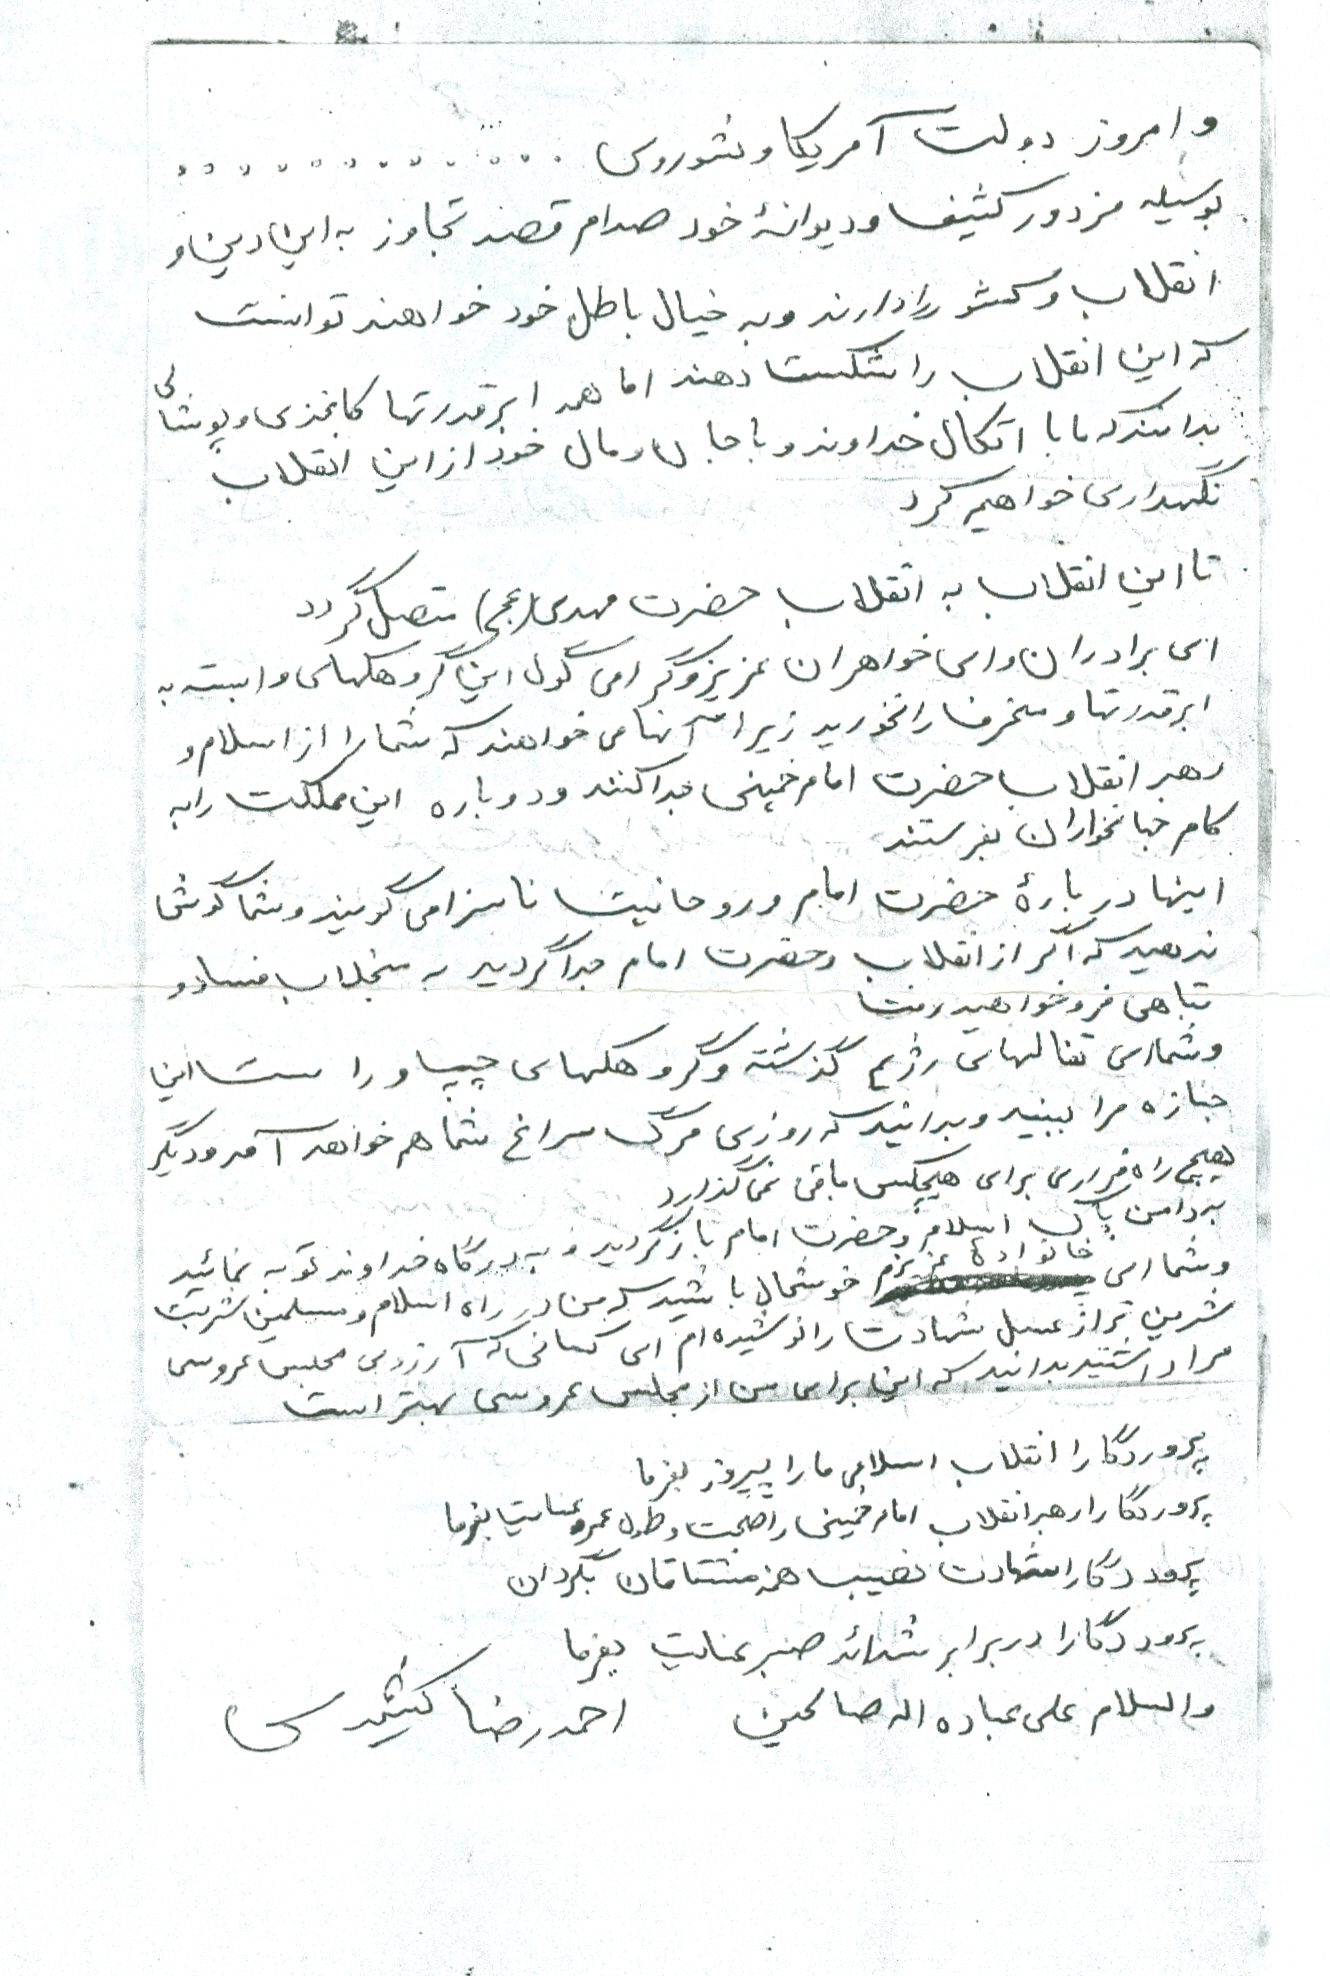 و امروز دولت آمریکا و شوروی . . . . . . . . . . . . .
بوسیله مزدور کثیف و دیوانهٔ خود صدام قصد تجاوز به این دین و
انقلاب و کشور را دارند و به خیال باطل خود خواهند توانست
که این انقلاب را شکست دهند اما همه ابرقدرتها کاغذی و پوشالی
بدانند که ما با اتکال خداوند و با جان و مال خود از این انقلاب
نگهداری خواهیم کرد
تا این انقلاب به انقلاب حضرت مهدی (عج) متصل گردد
ای برادران و ای خواهران عزیز و گرامی گول این گروهکهای وابسته به
ابرقدرتها و منحرف را نخورید زیرا آنها می خواهند که شما را از اسلام و
رهبر انقلاب حضرت امام خمینی جدا کنند و دوباره این مملکت را به
کام جهانخواران بفرستند
اینها دربارهٔ حضرت امام و روحانیت ناسزا می گویند و شما گوش
ندهید که اگر از انقلاب و حضرت امام جدا گردید به منجلاب فساد و
تباهی فرو خواهید رفت
و شما ای تفالهای رژیم گذشته و گروهکهای چپ و راست این
جنازه مرا ببینید و بدانید که روزی مرگ سراغ شما هم خواهد آمد و دیگر
هیچ راه فراری برای هیچکس باقی نمی گذارد
به دامن پاک اسلام و حضرت امام بازگردید و به درگاه خداوند توبه نمائید
و شما ای خانوادهٔ عزیزم خوشحال باشید که من در راه اسلام و مسلمین شربت
شرین تر از عسل شهادت را نوشیده ام ای کسانی که آرزوی مجلس عروسی
مرا داشتید بدانید که این برای من از مجلس عروسی بهتر است
پروردگارا انقلاب اسلامی ما را پیروز بفرما
پروردگارا رهبر انقلاب امام خمینی را صحت و طول عمر عنایت بفرما
پروردگارا شهادت نصیب همه مشتاقان بگردان
پروردگارا در برابر شدائد صبر عنایت بفرما
والسلام علی عباده اله صالحین احمد رضا